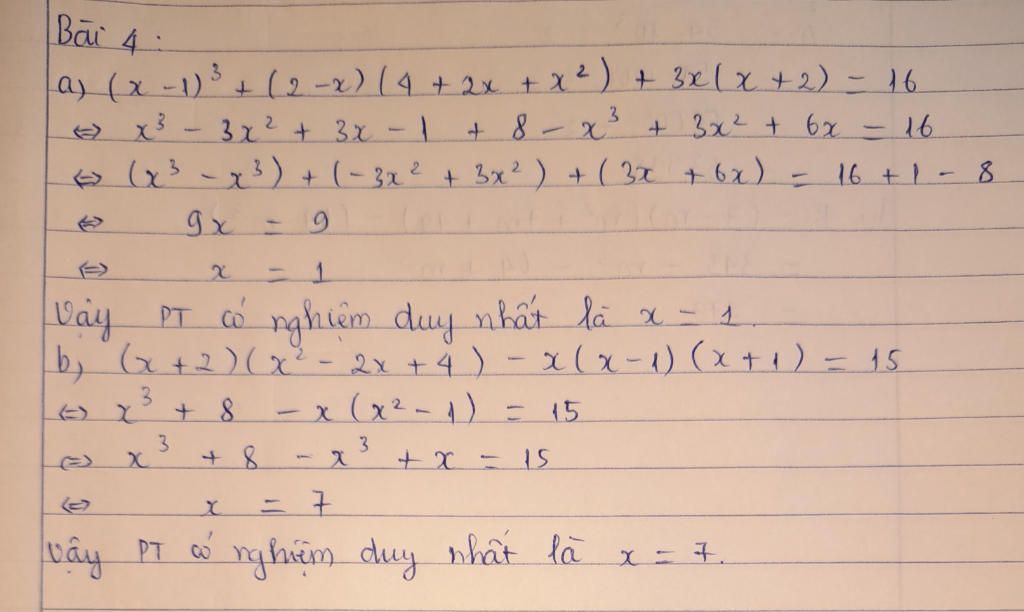 Bài 4 :
a) (x - 1)³ + (2 - x)(4 + 2x + x²) + 3x(x + 2) = 16
⇔ x³ - 3x² + 3x - 1 + 8 - x³ + 3x² + 6x = 16
⇔ (x³ - x³) + (-3x² + 3x²) + (3x + 6x) = 16 + 1 - 8
⇔ 9x = 9
⇔ x = 1
Vậy PT có nghiệm duy nhất là x = 1.
b) (x + 2)(x² - 2x + 4) - x(x - 1)(x + 1) = 15
⇔ x³ + 8 - x(x² - 1) = 15
⇔ x³ + 8 - x³ + x = 15
⇔ x = 7
Vậy PT có nghiệm duy nhất là x = 7.